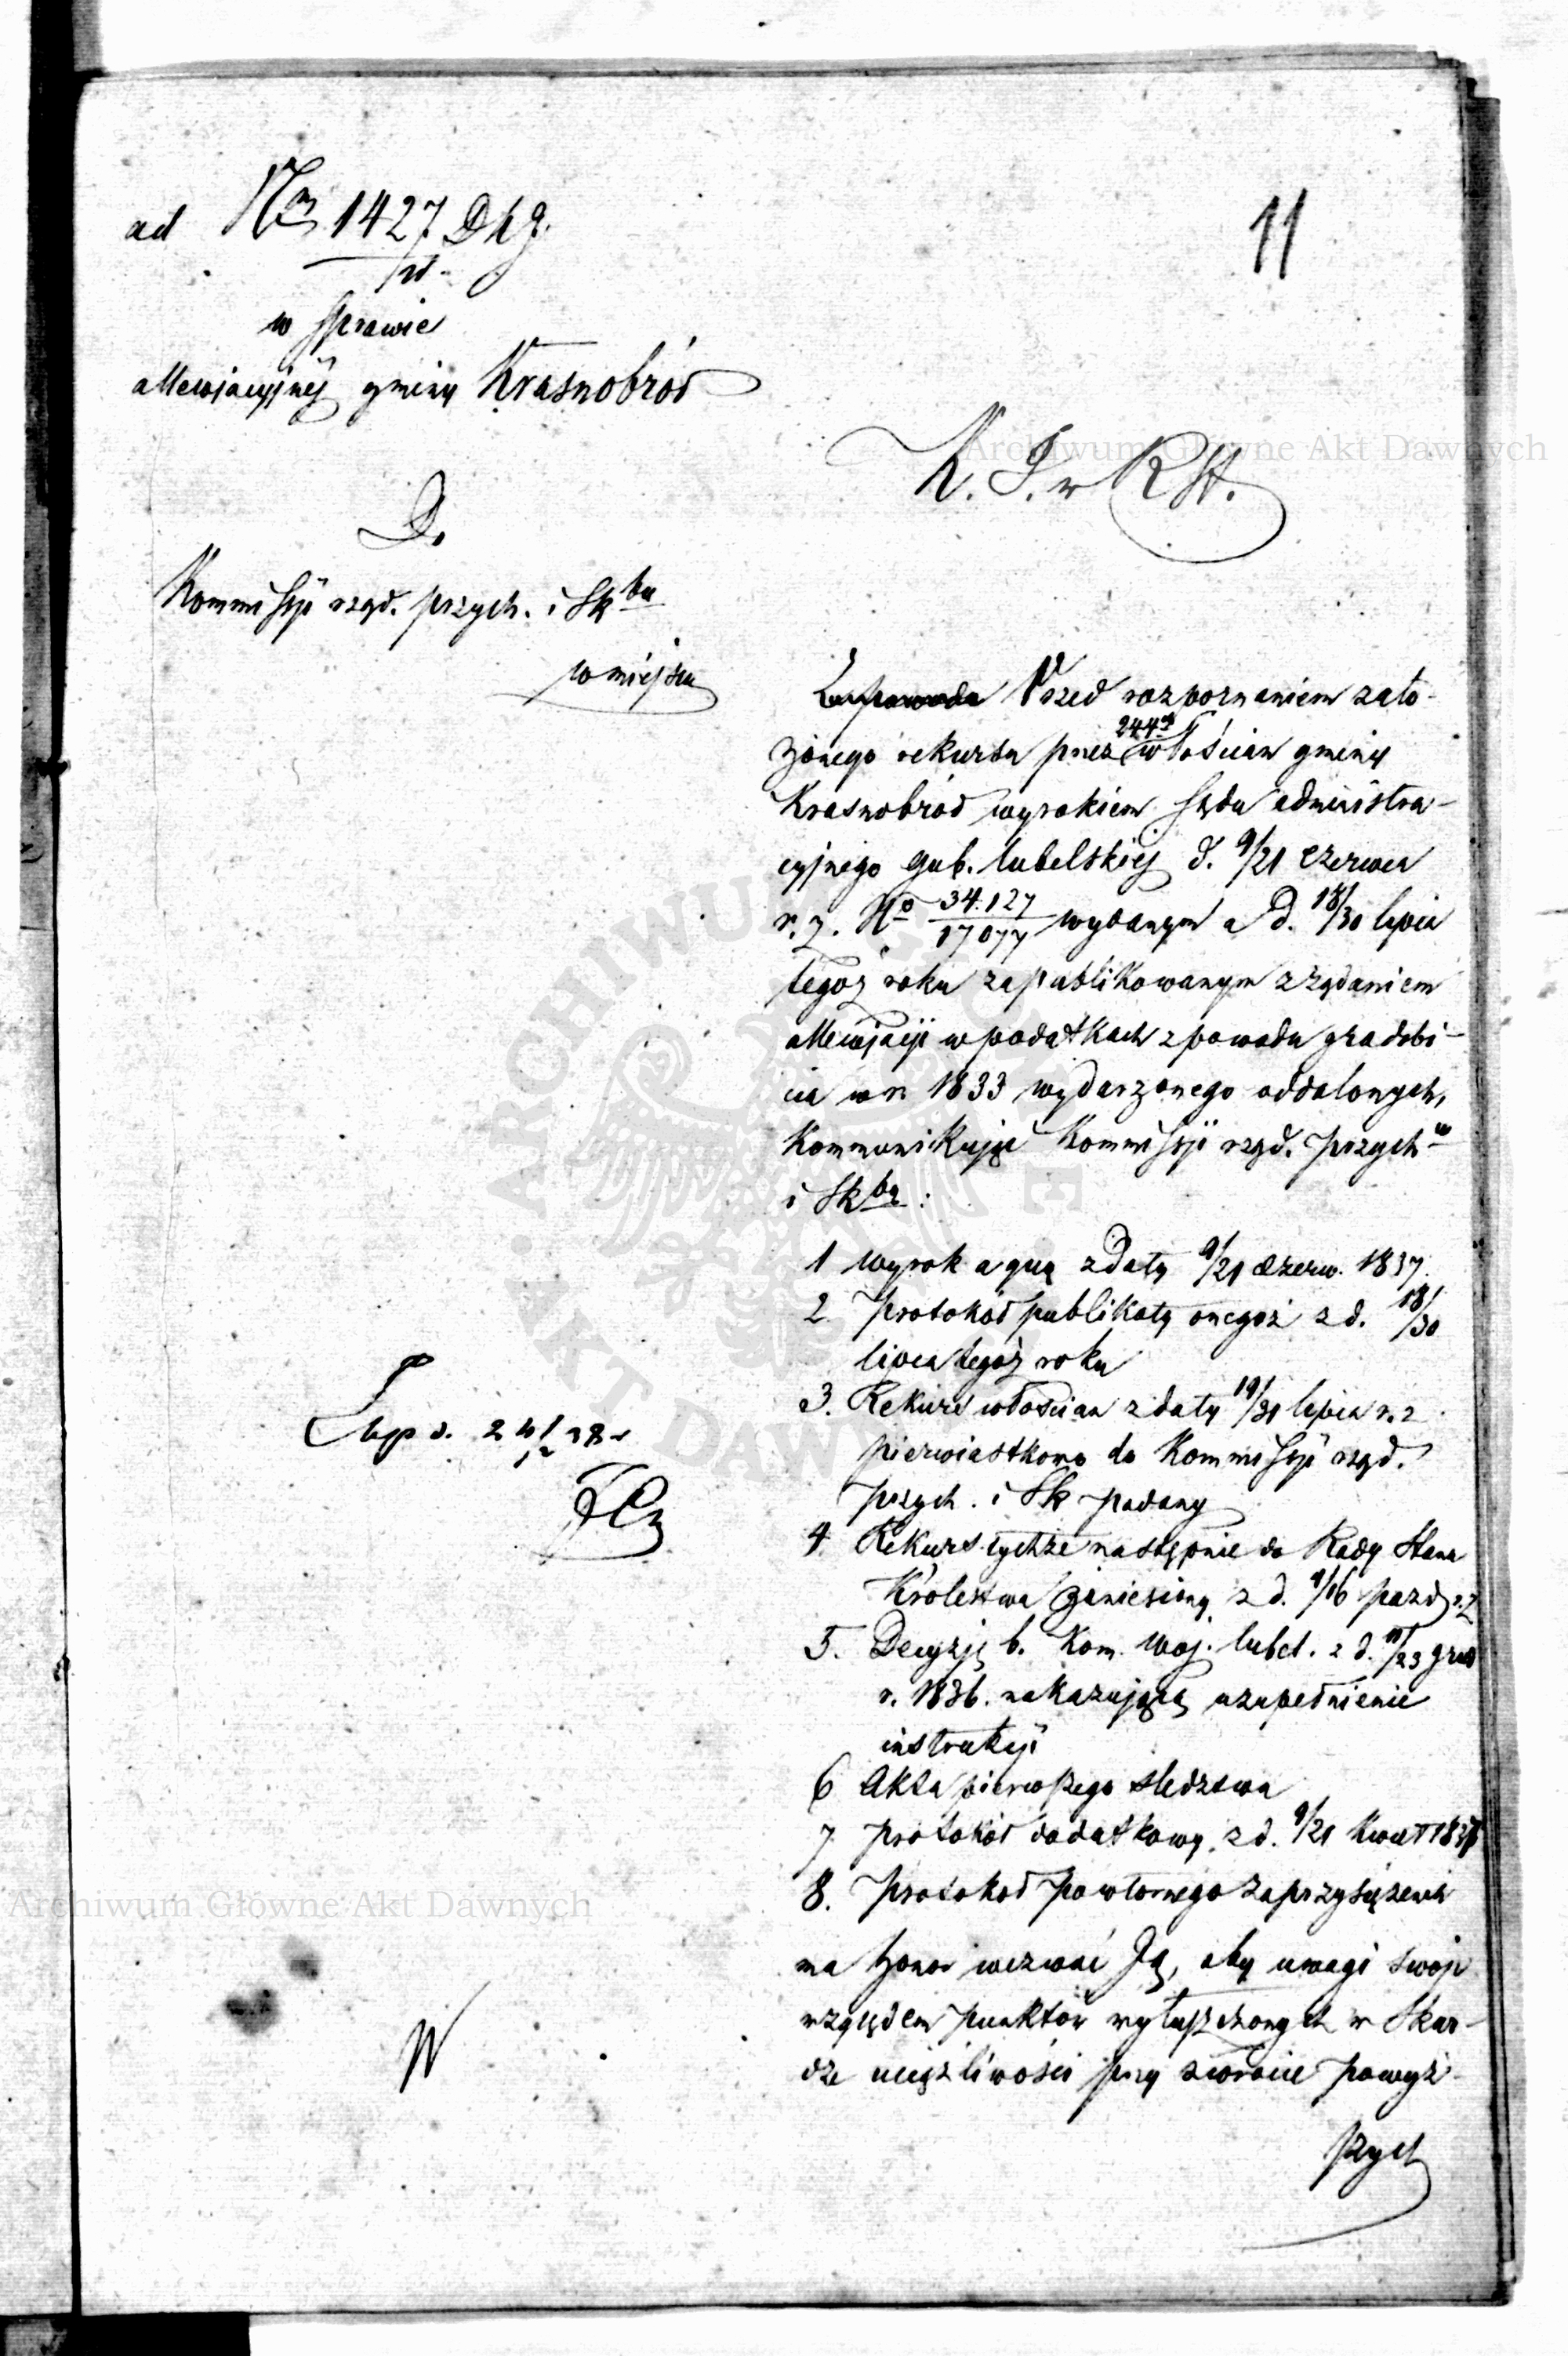 11
ad Nro 1427 Dhg.
w Sprawie
allewjacyjnéj gminy Krasnobród
Do
Kommissyi rząd. przych. i Skbu
w miejscu
K. S. w R St.
Przed rozpoznaniem zało-
żonego rekursu przez 244ch włościan gminy
Krasnobród wyrokiem Sądu administra-
cyjnego gub. lubelskiej d. 9/21 czerwca
r. z. No 34.127/17077 wydanym a d. 18/30 lipca
tegoż roku zapublikowanym z żądaniem
allewjacyi w podatkach z powodu gradobi-
cia w r. 1833 wydarzonego oddalonych,
Kommunikując Kommissyi rząd. przychw
i Skbu:
1 Wyrok a quą z daty 9/21 czerw. 1837
2 Protokół publikaty onegoż z d. 18/30
lipca tegoż roku
3. Rekurs włościan z daty 19/31 lipca r. z
pierwiastkowo do Kommissyi rząd.
przych. i Sk podany
4 Rekurs tychże następnie do Rady Stanu
Królestwa zaniesiony z d. 4/16 pazd. r. z
5. Decyzję b. Kom. Woj. lubel. z d. 11/23 grud
r. 1836. nakazującą uzupełnienie
instrukcyi
6 Akta pierwszego sledztwa
7 protokół dodatkowy z d. 9/21 Kwiet 1837
8. Protokół powtórnego zaprzysiężenia
ma honor wezwać Ją, aby uwagi swoje
względem punktów wyłuszczonych w Skar-
dze uciążliwości przy zwrocie powyż-
szych
Archiwum Główne Akt Dawnych
Archiwum Główne Akt Dawnych
ARCHIWUM GŁÓWNE
AKT DAWNYCH